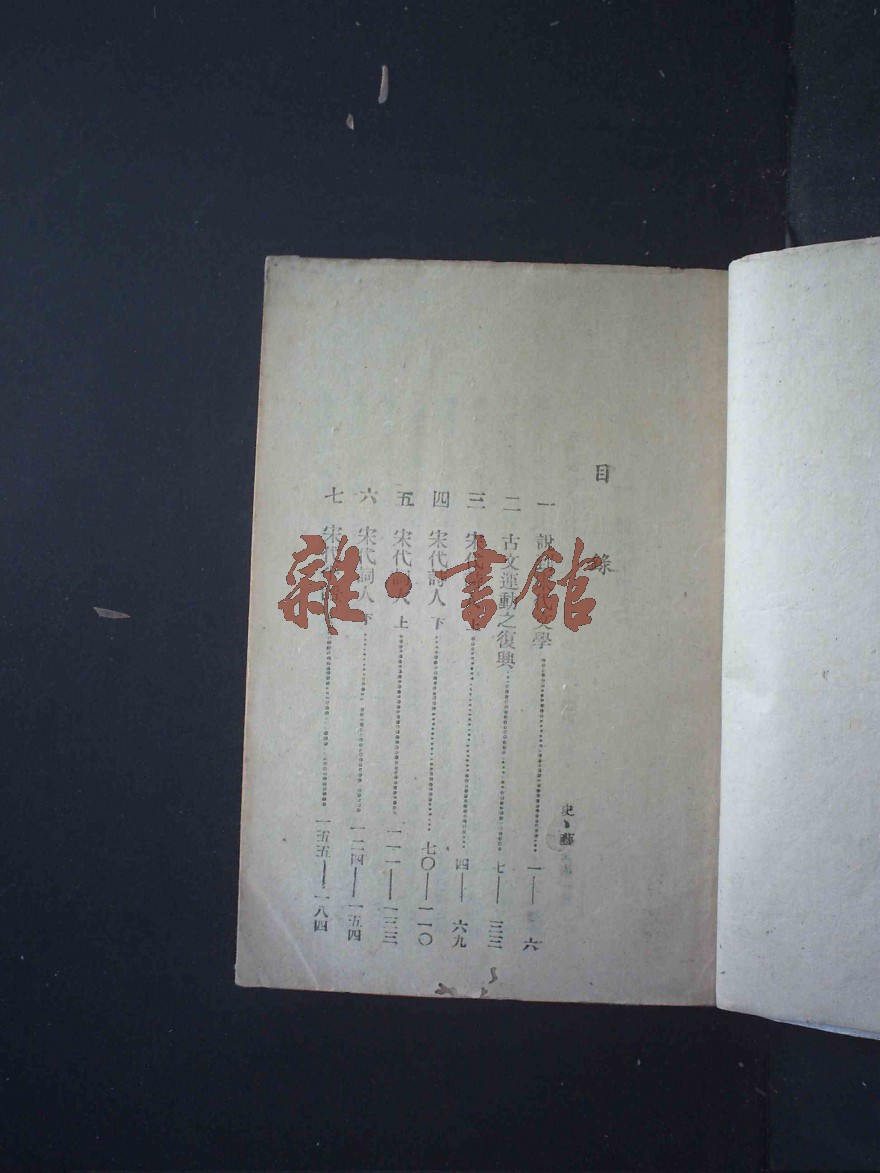 目錄
一 說 學……一——六
二 古文運動之復興……七——三三
三 宋 上……四——六九
四 宋代詩人 下……七〇——一一〇
五 宋代詞人 上……一一一——一三三
六 宋代詞人 下……一二四——一五四
七 宋代……一五五——一八四
史、藝
雜·書館